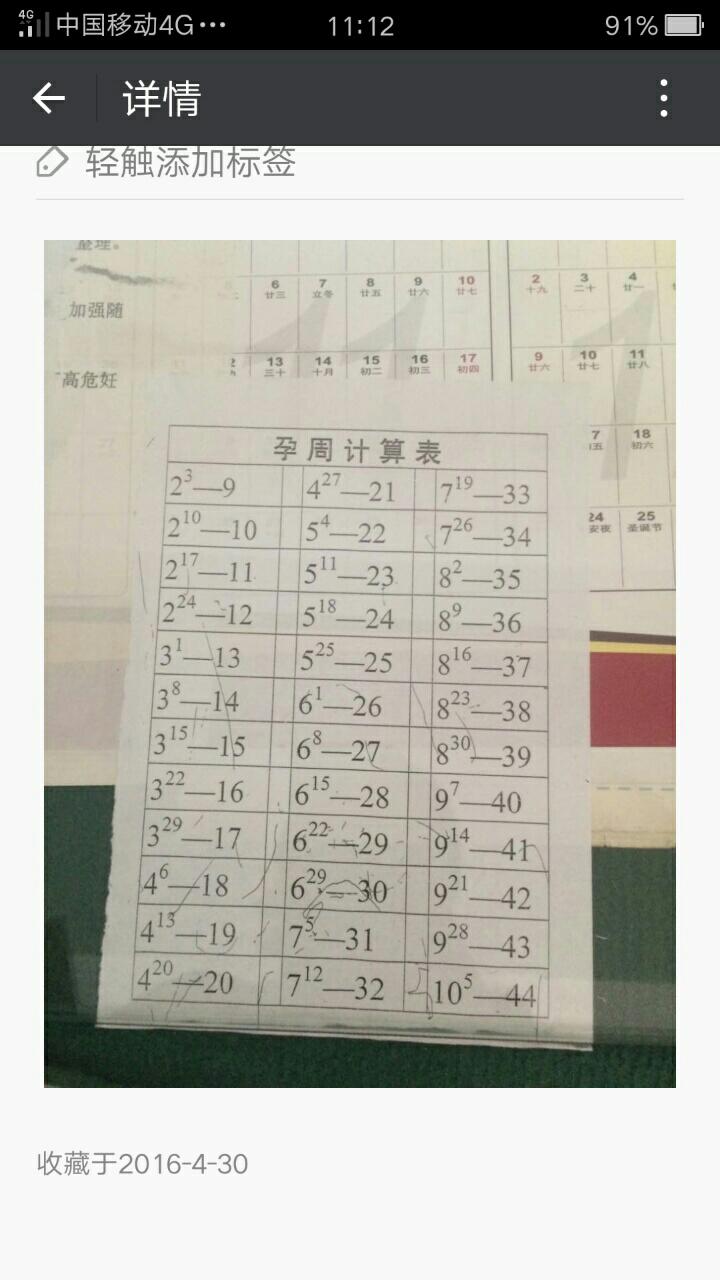 4G 中国移动4G··· 11:12 91%
详情
轻触添加标签
6 7 8 9 10 2 3 4
廿三 立冬 廿五 廿六 廿七 十九 二十 廿一
加强随
13 14 15 16 17 9 10 11
三十 十月 初二 初三 初四 廿六 廿七 廿八
高危妊
7 18
初六
24 25
圣诞节
孕周计算表
2³—9 4²⁷—21 7¹⁹—33
2¹⁰—10 5⁴—22 7²⁶—34
2¹⁷—11 5¹¹—23 8²—35
2²⁴—12 5¹⁸—24 8⁹—36
3¹—13 5²⁵—25 8¹⁶—37
3⁸—14 6¹—26 8²³—38
3¹⁵—15 6⁸—27 8³⁰—39
3²²—16 6¹⁵—28 9⁷—40
3²⁹—17 6²²—29 9¹⁴—41
4⁶—18 6²⁹—30 9²¹—42
4¹³—19 7⁵—31 9²⁸—43
4²⁰—20 7¹²—32 10⁵—44
收藏于2016-4-30